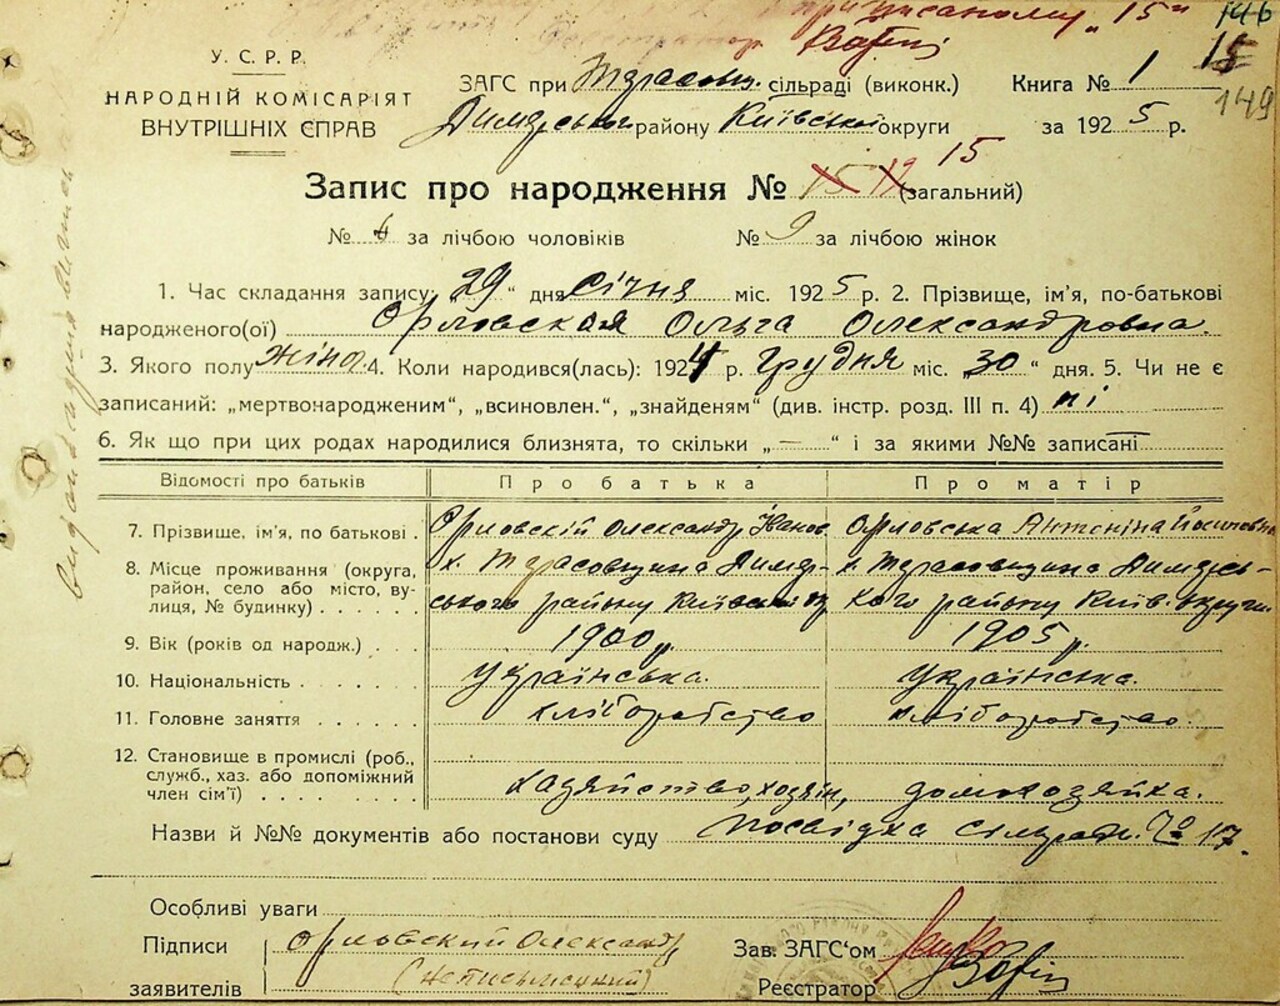 приписаному „15" 146
У. С. Р. Р.
НАРОДНІЙ КОМІСАРІЯТ
ВНУТРІШНІХ СПРАВ
15
149
ЗАГС при Тарасовщ. сільраді (виконк.) Книга № 1
Димерського району Київської округи за 1925 р.
15
Запис про народження № 15 12 (загальний)
№ 6 за лічбою чоловіків № 9 за лічбою жінок
1. Час складання запису: „29" дня січня міс. 1925 р. 2. Прізвище, ім'я, по-батькові
народженого(ої) Орловская Ольга Олександровна.
3. Якого полу жіноч. 4. Коли народився(лась): 1924 р. грудня міс. „30" дня. 5. Чи не є
записаний: „мертвонародженим", „всиновлен.", „знайденям" (див. інстр. розд. III п. 4) ні
6. Як що при цих родах народилися близнята, то скільки „—" і за якими №№ записані
Відомості про батьків Про батька Про матір
7. Прізвище, ім'я, по батькові . Орловскій Олександр Іванов. Орловська Антоніна Йосиповна
8. Місце проживання (округа, х. Тарасовщина Димер- х. Тарасовщина Димерсь-
район, село або місто, ву- ського району Київської окр кого району Київ. округи.
лиця, № будинку) . . . . . .
9. Вік (років од народж.) . . . 1900 р. 1905 р.
10. Національність . . . . . . Українська. Українська.
11. Головне заняття . . . . . . хліборобство хліборобство.
12. Становище в промислі (роб.,
служб., хаз. або допоміжний
член сім'ї) . . . . . . . . хазяйство, хозяїн, домохозяйка.
Назви й №№ документів або постанови суду Посвідка сільради № 17.
Особливі уваги
Підписи Орловский Олександр
заявителів (неписьменний)
Зав. ЗАГС'ом
Реєстратор